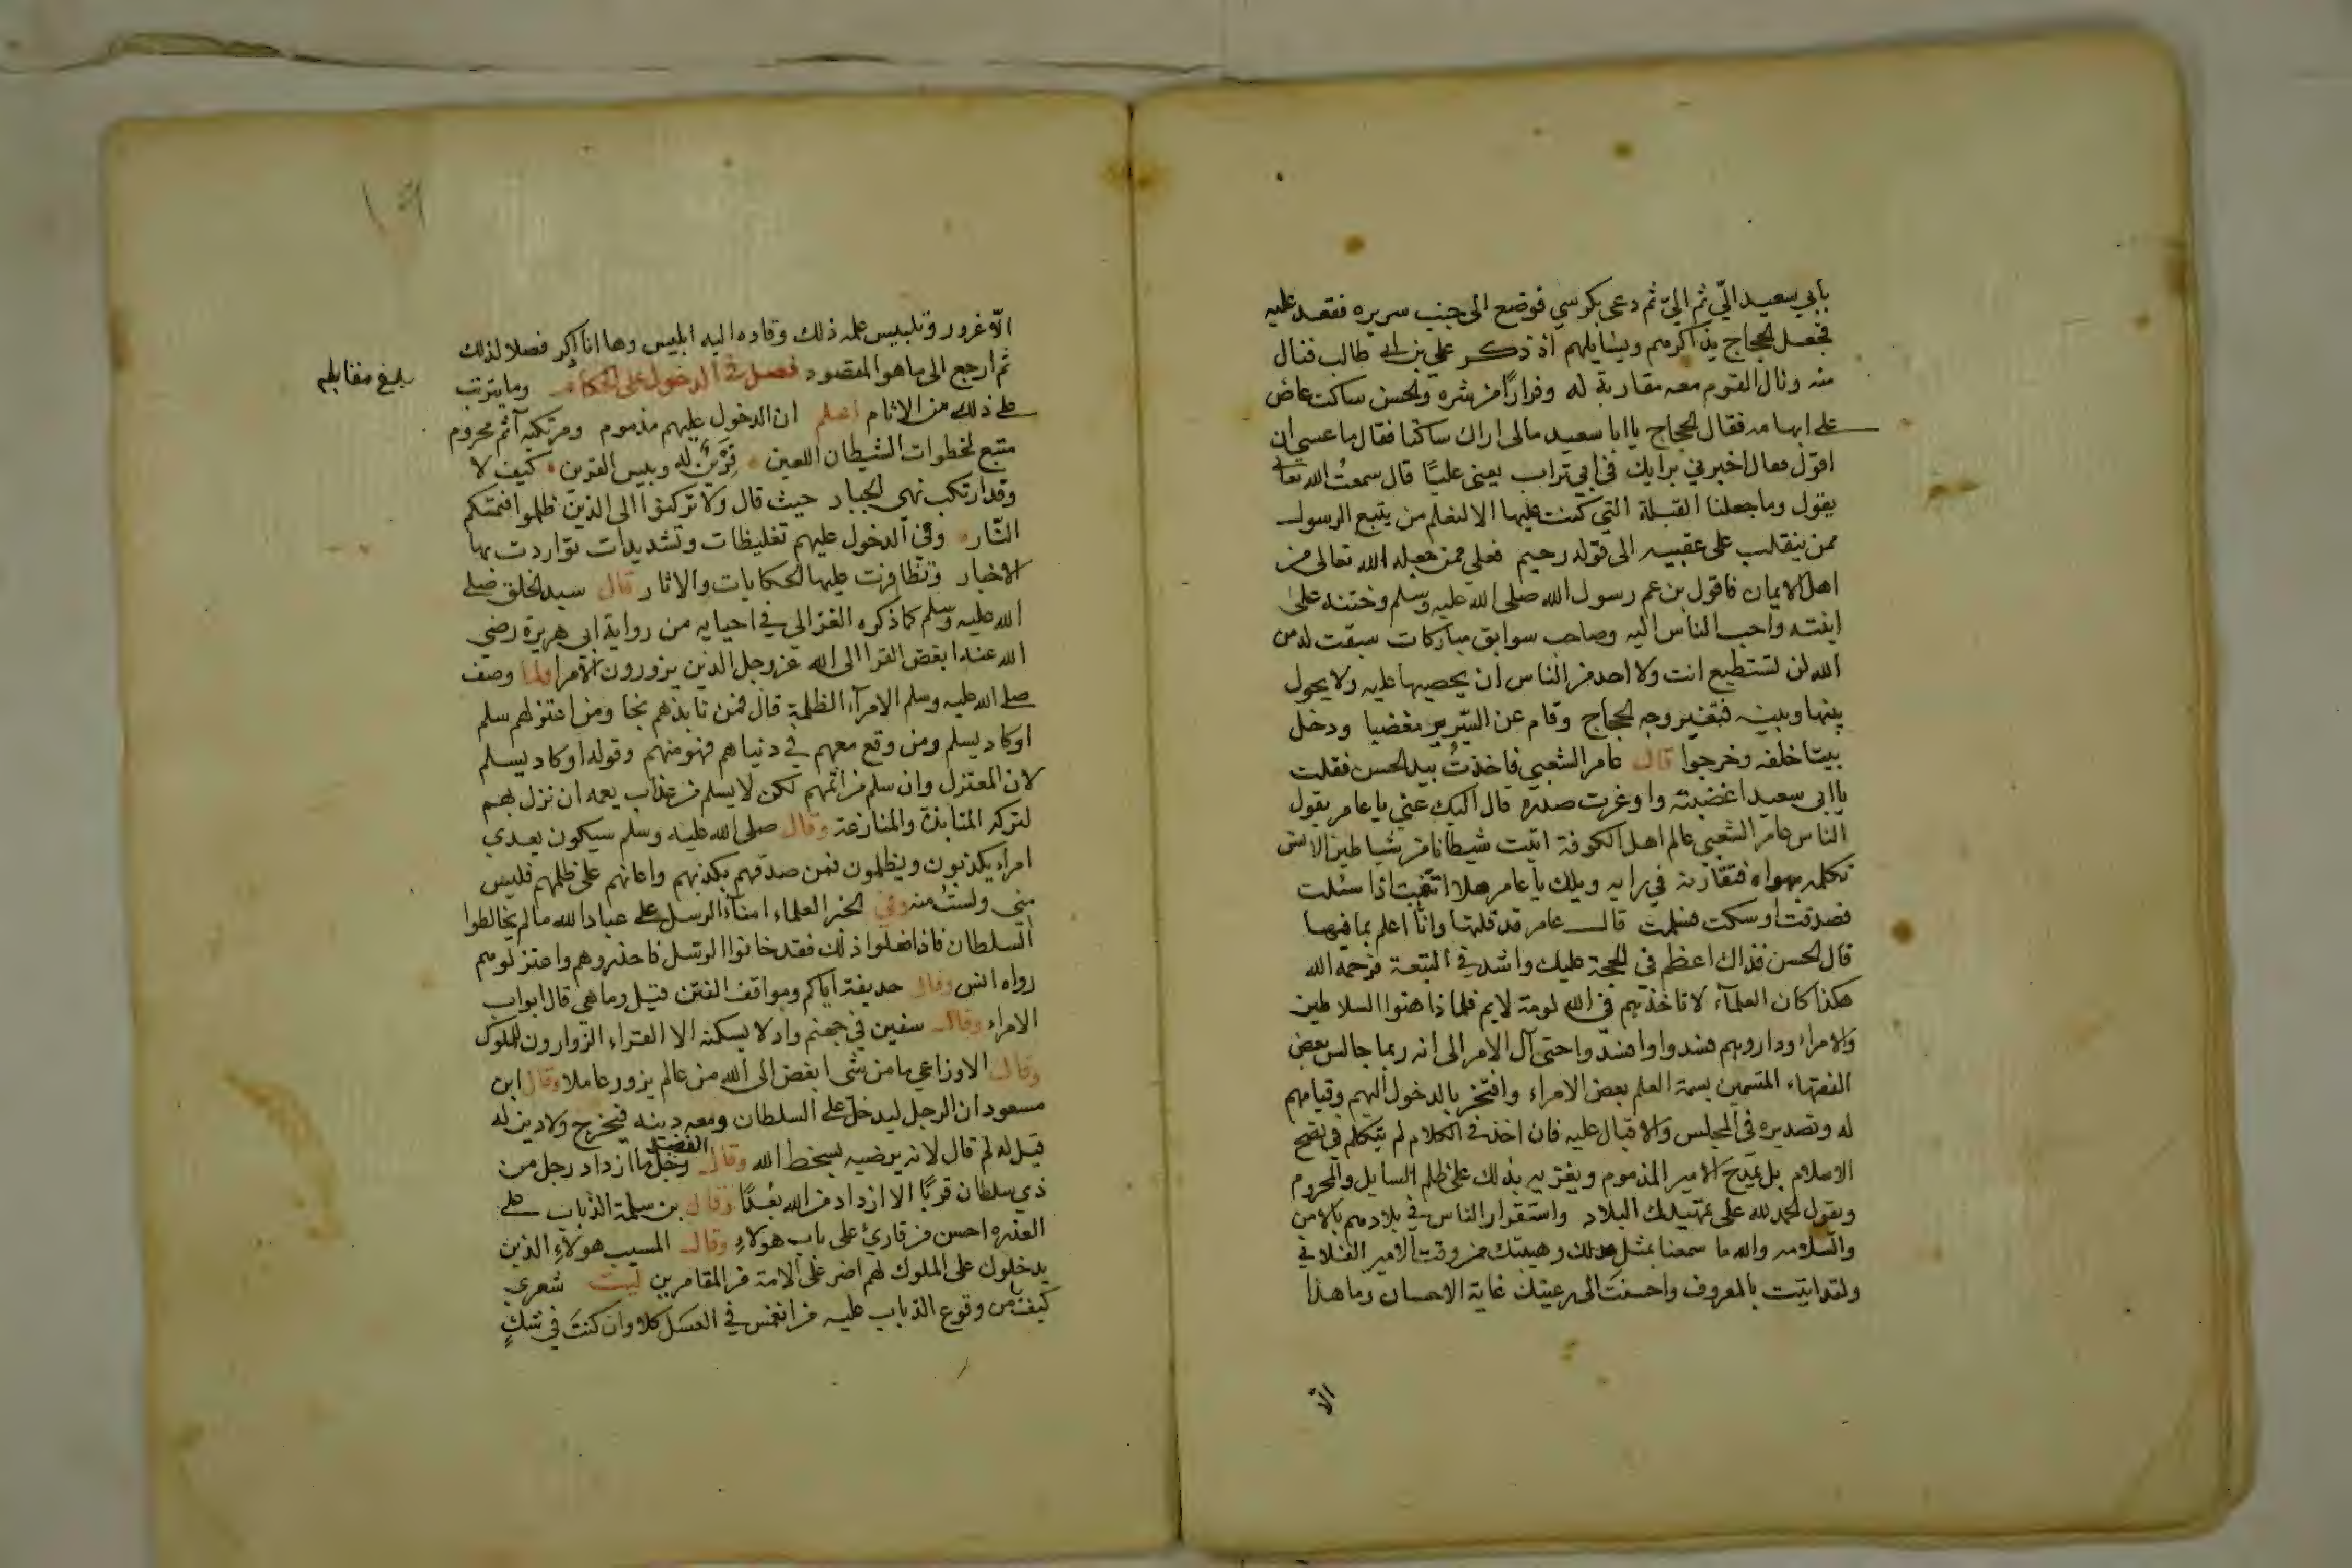 بابي سعيد اليّ ثم اليّ ثم دعى بكرسي فوضع الى جنب سريره فقعد عليه
فجعل الحجاج يذاكرهم ويسايلهم اذ ذكر علي بن ابي طالب فنال
منه ونال القوم معه مقاربة له وفرارًا من شره والحسن ساكت عاض
على ابهامه فقال الحجاج يا ابا سعيد مالى اراك ساكتا فقال ما عسى ان
اقول فقال اخبرني برايك في ابي تراب يعنى عليًا قال سمعتُ الله تعالى
يقول وما جعلنا القبلة التي كنت عليها الا لنعلم من يتبع الرسول
ممن ينقلب على عقبيه الى قوله رحيم فعلي ممن جعله الله تعالى من
اهل الايمان فاقول بن عم رسول الله صلى الله عليه وسلم وختنه على
ابنته واحب الناس اليه وصاحب سوابق مباركات سبقت له من
الله لن تستطيع انت ولا احد من الناس ان يحصيها عليه ولا يحول
بينها وبينه فتغير وجه الحجاج وقام عن السّرير مغضبا ودخل
بيتا خلفه وخرجوا قال عامر الشعبي فاخذتُ بيد الحسن فقلت
يا ابى سعيد اغضبته واوغرت صدره قال اليك عني يا عامر يقول
الناس عامر الشعبي عالم اهل الكوفة اتيت شيطانا من شياطين الانس
تكلمه بهواه فتقاربه في رايه ويلك يا عامر هلا اتقيت اذا سئلت
فصدقت او سكت فسلمت قال عامر قد قلتها وانا اعلم بما فيها
قال الحسن فذاك اعظم في الحجة عليك واشد في التبعة فرحمه الله
هكذا كان العلمآء لا تاخذهم في الله لومة لايم فلما ذاهنوا السلاطين
والامراء وداروهم فسدوا وافسدوا حتى آل الامر الى انه ربما جالس بعض
الفقهاء المتسمين بسمة العلم بعض الامراء وافتخر بالدخول اليهم وقيامهم
له وتصديره في المجلس والاقبال عليه فان اخذ في الكلام لم يتكلم في نصح
الاسلام بل يمدح الامير المذموم ويغتر به بذلك على ظلم السايل والمحروم
ويقول الحمد لله على تمهيدك البلاد واستقرار الناس في بلادهم بالامن
والسلامه والله ما سمعنا بمثل عدلك وهيبتك من وقت الامير الفلاني
ولقد اتيت بالمعروف واحسنت الى رعيتك غاية الاحسان وما هذا
الّا
١٩
الّا غرور وتلبيس عمله ذلك وقاده اليه ابليس وها انا اذكر فصلا لذلك
ثم ارجع الى ما هو المقصود فصل في الدخول على الحكام وما يترتب
على ذلك من الاثام اعلم ان الدخول عليهم مذموم ومرتكبه آثم محروم
متبع لخطوات الشيطان اللعين قرين له وبيس القرين كيف لا
وقد ارتكب نهي الجبار حيث قال ولا تركنوا الى الذين ظلموا فتمسكم
النّار وفي الدخول عليهم تغليظات وتشديدات تواردت بها
الاخبار وتظافرت عليها الحكايات والاثار قال سيد الخلق صلى
الله عليه وسلم كما ذكره الغزالي في احيايه من رواية ابى هريرة رضي
الله عنه ابغض القرا الى الله عز وجل الذين يزورون الامرا ولما وصف
صلى الله عليه وسلم الامرآء الظلمة قال فمن نابذهم نجا ومن اعتزلهم سلم
او كاد يسلم ومن وقع معهم في دنياهم فهو منهم وقوله او كاد يسلم
لان المعتزل وان سلم من اثمهم لكن لا يسلم من عذاب يعمه ان نزل بهم
لتركه المنابذة والمنازعة وقال صلى الله عليه وسلم سيكون بعدي
امراء يكذبون ويظلمون فمن صدّقهم بكذبهم واعانهم على ظلمهم فليس
مني ولستُ منه وفي الخبر العلماء امنآء الرسل على عباد الله ما لم يخالطوا
السلطان فاذا فعلوا ذلك فقد خانوا الرسل فاحذروهم واعتزلوهم
رواه انس وقال حذيفة اياكم ومواقف الفتن قيل وما هي قال ابواب
الامراء وقال سفين في جهنم واد لا يسكنه الا القراء الزوارون للملوك
وقال الاوزاعي ما من شى ابغض الى الله من عالم يزور عاملا وقال ابن
مسعود ان الرجل ليدخل على السلطان ومعه دينه فيخرج ولا دين له
قيل له لم قال لانه يرضيه بسخط الله وقال الفضيل ما ازداد رجل من
ذي سلطان قربًا الا ازداد من الله بعدًا وقال بن سلمة الذباب على
العذره احسن من قارئ على باب هولاءِ وقال المسيب هولآءِ الذين
يدخلون على الملوك لهم اضر على الامة من المقامرين ليت شعري
كيف يأمن وقوع الذباب عليه من انغمس في العسل كلا وان كنتَ في شكٍ
بلغ مقابله